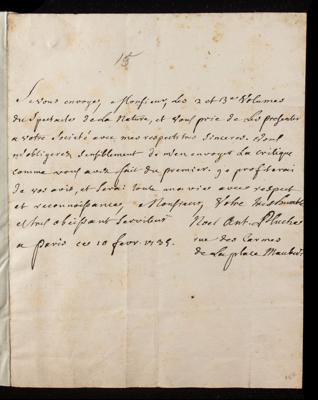 Je vous envoye, Monsieur, Les 2 et 3e Volumes
du Spectacle de La Nature, et vous prie de Les presenter
a votre Societé avec mes respects tres sinceres. Vous
m'obligerez sensiblement de m'en envoyer La critique
comme vous avez fait du premier. je profiterai
de vos avis, et serai toute ma vie avec respect
et reconnoissance, Monsieur, Votre tres humble
et tres obeissant serviteur
Noel Ant. Pluche
a Paris ce 10 fevr. 1735.
rue des Carmes
de La place Maubert